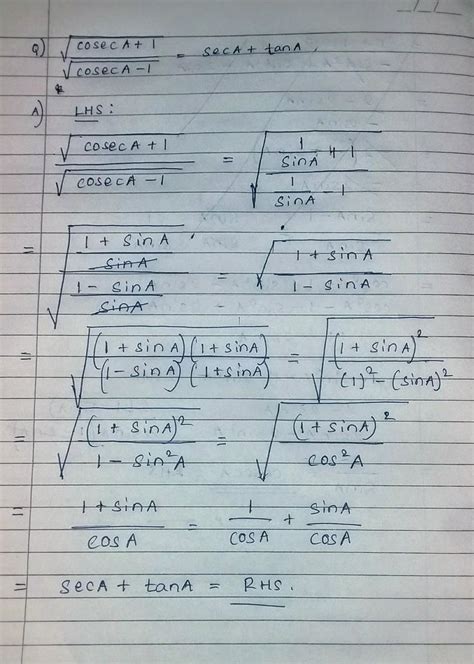 Q) √(cosecA + 1) / √(cosecA − 1) = secA + tanA.
A) LHS:
√(cosecA + 1) / √(cosecA − 1) = √((1/sinA + 1) / (1/sinA − 1))
= √(((1 + sinA)/sinA) / ((1 − sinA)/sinA)) = √((1 + sinA) / (1 − sinA))
= √((1 + sinA)(1 + sinA) / (1 − sinA)(1 + sinA)) = √((1 + sinA)² / (1)² − (sinA)²)
= √((1 + sinA)² / 1 − sin²A) = √((1 + sinA)² / cos²A)
= (1 + sinA) / cosA = 1/cosA + sinA/cosA
= secA + tanA = RHS.